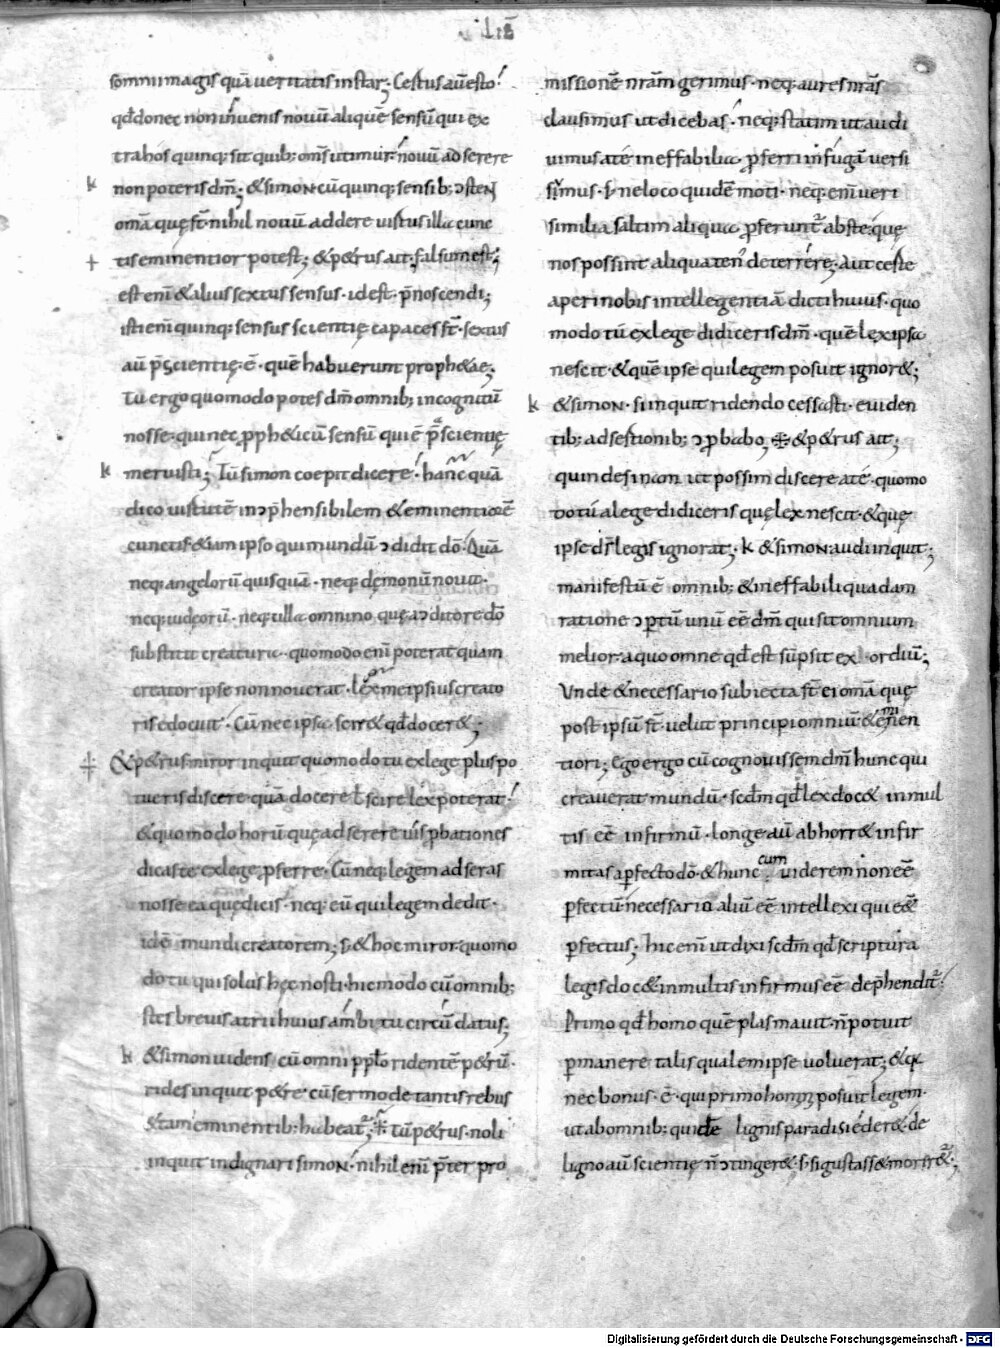 somnii magis quā ueritatis instar; Certus aū esto!
qđ donec non inuenis nouū aliquē sensū qui ex
trahos quinq; sit quib; om̄s utimur· nouū adserere
k non poteris dm̄; & simon cū quinq; sensib; ↄsten
om̄a quę st̄· nihil nouū addere uistus illa cunc
+ tis eminentior potest; & p&rus ait; falsum est;
est eni & alius sextus sensus· id est· p̄noscendi;
isti eni quinq; sensus scientię capaces st̄· sextus
aū p̄scientię· ē· quē habuerunt proph&ae;
Tū ergo quomodo potes dm̄ omnib; incognitū
nosse· qui nec pproph&icū sensū qui ē p̄scientię
k meruisti; Tū simon coepit dicere! hanc quā
dico uistutē inↄp̄hensibilem & eminentiorē
cunctis· & iam ipso qui mundū ↄdidit dō· Quā
neq; angelorū quisquā· neq; dęmonū nouit·
neq; iudęorū· neq; ulla omnino quę a ↄditore dō
substitit creatura· quomodo eni poterat quam
creator ipse non nouerat· lex me ipsius creato
ris edocuit· Cū nec ipsa scir& qđ docer&;
& p&rus· miror inquit quomodo tu ex lege plus po
tueris discere· quā docere ł scire lex poterat!
& quomodo horū quę adserere uis pbationes
dicas te ex lege pferre· Cū neq; legem adseras
nosse ea quę dicis· neq; eū qui legem dedit·
idē mundi creatorem; s; & hoc miror· quomo
do tu qui solus hęc nosti· hic modo cū omnib;
stes breuis atrii huius ambitu circū datus;
k & simon uidens cū omni pplo ridentē p&rū·
rides inquit p&re· cū sermo de tantis rebus
& tam eminentib; habeat; tū p&rus· noli
inquit indignari simon· nihil eni p̄ter pro
missionē nr̄am gerimus· neq; aures nr̄as
clausimus ut dicebas· neq; statim ut audi
uimus a te ineffabilia pferri in fugā uersi
sumus· s; ne loco quidē moti· neq; eni ueri
similia saltim aliqua pferunt abs te· quę
nos possint aliquaten deterrere; Aut certe
aperi nobis intellegentiā dicti huius· quo
modo tū ex lege didiceris dm̄· quē lex ipsa
nescit· & quē ipse qui legem posuit ignor&;
k & simon· si inquit ridendo cessasti· euiden
tib; adsertionib; ↄpbabo; & p&rus ait;
quin desinam ut possim discere a te· quomo
do tu a lege didiceris quę lex nescit· & quę
ipse ds̄ legis ignorat; k & simon· audi inquit;
manifestū ē omnib; & ineffabili quadam
ratione ↄptū unū eē dm̄ qui sit omnium
melior· a quo omne qđ est supsit ex ordiū;
Unde & necessario subiecta st̄ ei om̄a quę
post ipsū st̄· uelut principi omniū & emen
tiori; Ego ergo cū cognouissem dm̄ hunc qui
creauerat mundū· scdm qđ lex doc& in mul
tis eē infirmū· longe aū abhorr& infir
mitas a pfecto dō· & hunc cum uiderem non eē
pfectū· necessario aliū eē intellexi qui e&
pfectus; hic eni ut dixi scdm qđ scriptura
legis doc& in multis infirmus eē dep̄hendit!
Primo qđ homo quē plasmauit· n̄ potuit
pmanere talis qualem ipse uoluerat; & qa
nec bonus· ē· qui primo homini posuit legem·
ut ab omnib; quidē lignis paradisi eder&· de
ligno aū scientię n̄ ↄtinger&· s; si gustass& morer&;